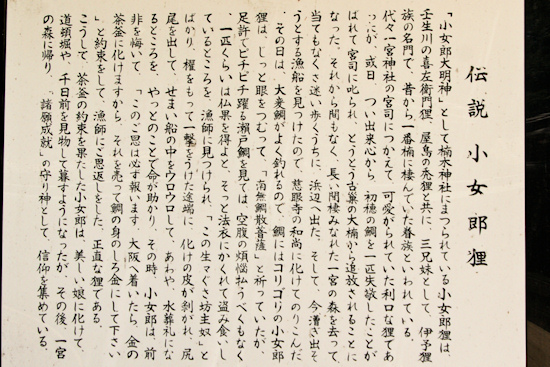 伝説 小女郎狸
「小女郎大明神」として楠木神社にまつられている小女郎狸は、
壬生川の喜左衛門狸、屋島の禿狸と共に、三兄妹として、伊予狸
族の名門で、昔から一番楠に棲んでいた眷族といわれている。
代々一宮神社の宮司につかえて、可愛がられていた利口な狸であ
ったが、或日、つい出来心から、初穂の鯛を一匹失敬したことが
ばれて宮司に叱られ、とうとう古巣の大楠から追放されることに
なった。それから間もなく、長い間棲みなれた一宮の森を去って、
当てもなくさ迷い歩くうちに、浜辺へ出た。そして、今漕ぎ出そ
うとする漁船を見つけたので、慈眼寺の和尚に化けてのりこんだ
その日は、大変鯛がよく釣れるので、鯛にはコリゴリの小女郎
狸は、じっと眼をつむって、「南無鯛散菩薩」と祈っていたが、
足許でピチピチ躍る瀬戸鯛を見ては、空腹の煩悩払うべくもなく
一匹くらいは仏果を得よと、そっと法衣にかくれて盗み食いし
ているところを、漁師に見つけられ、「この生々ぐさ坊主奴」と
ばかり、櫂をもって一撃をうけた途端に、化けの皮が剥がれ、尻
尾を出して、せまい船の中をウロウロして、あわや、水葬礼にな
るところを、やっとのことで命が助かり、その時、小女郎は、前
非を悔いて、「このご恩は必ず報います、大阪へ着いたら、金の
茶釜に化けますから、それを売って鯛の身のしろ金にして下さい
」と約束をして、漁師にご恩返しをした、正直な狸である。
こうして、茶釜の約束を果たした小女郎は、美しい娘に化けて、
道頓堀や、千日前を見物して暮すようになったが、その後、一宮
の森に帰り、「諸願成就」の守り神として、信仰を集めている。